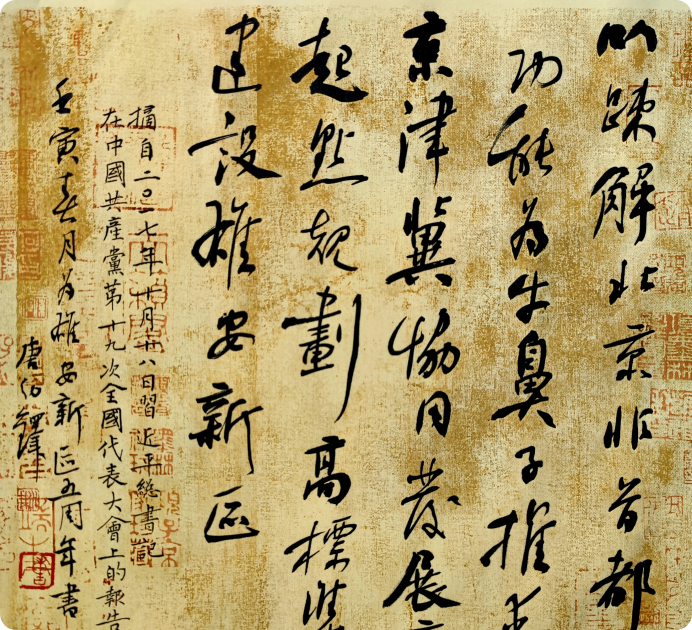 以踈解北京非首都
功能为牛鼻子推
京津冀協同發展
起點規劃高標準
建設雄安新區
摘自二〇一七年十月十八日習近平總書記
在中國共產黨第十九次全國代表大會上的報告
壬寅春月为雄安新區五周年書
唐伯